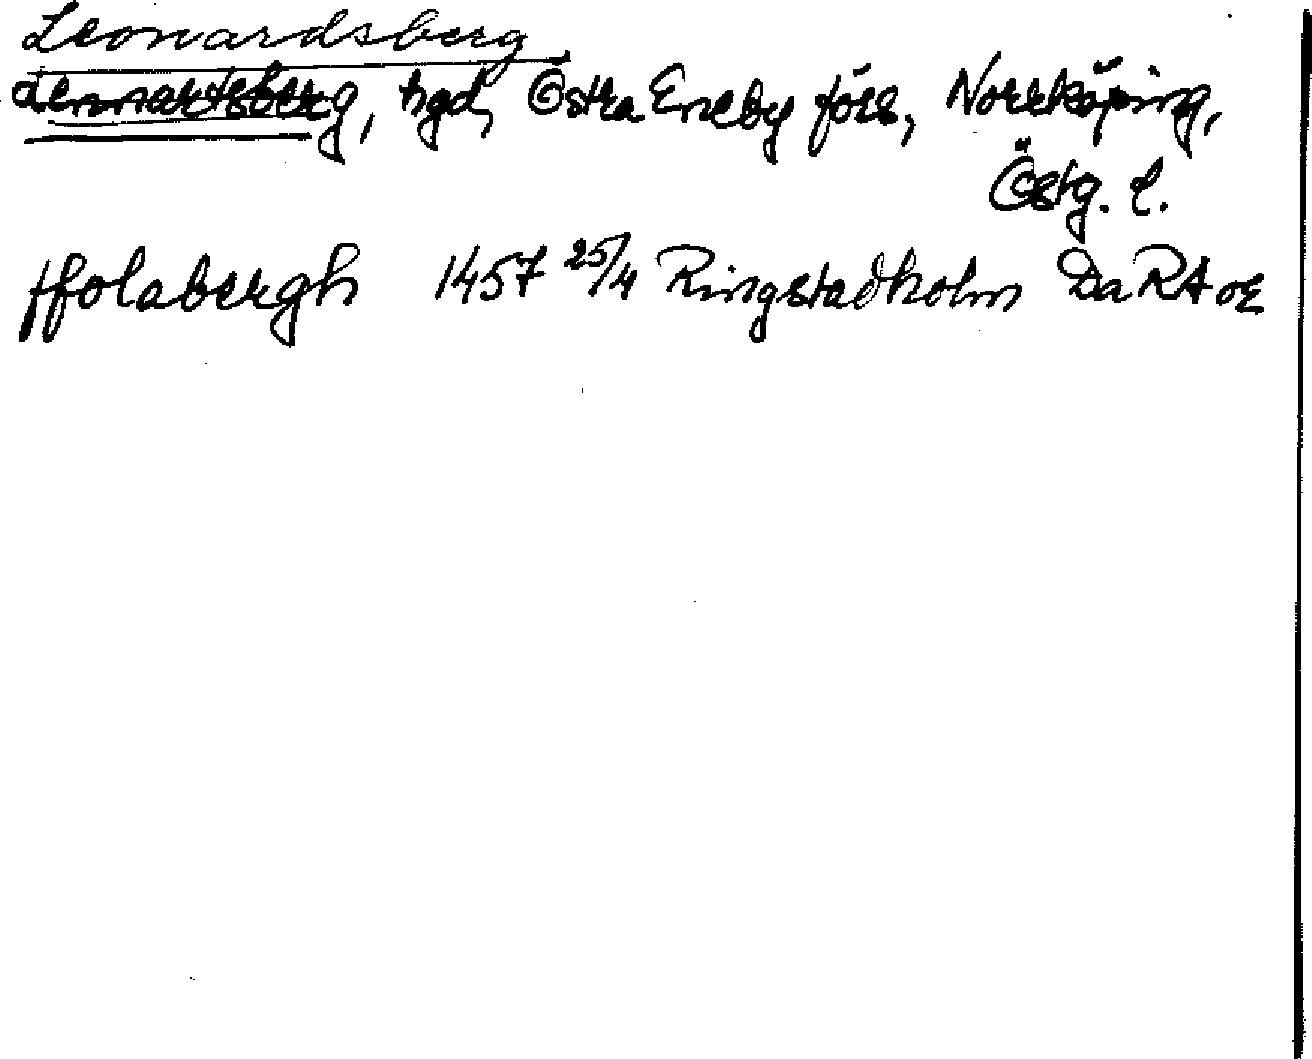 Leonardsberg
Lennartsberg, hgd, Östra Eneby förs, Norrköping,
Östg. l.
ffolabergh 1457 25/4 Ringstadholm Da RA oE